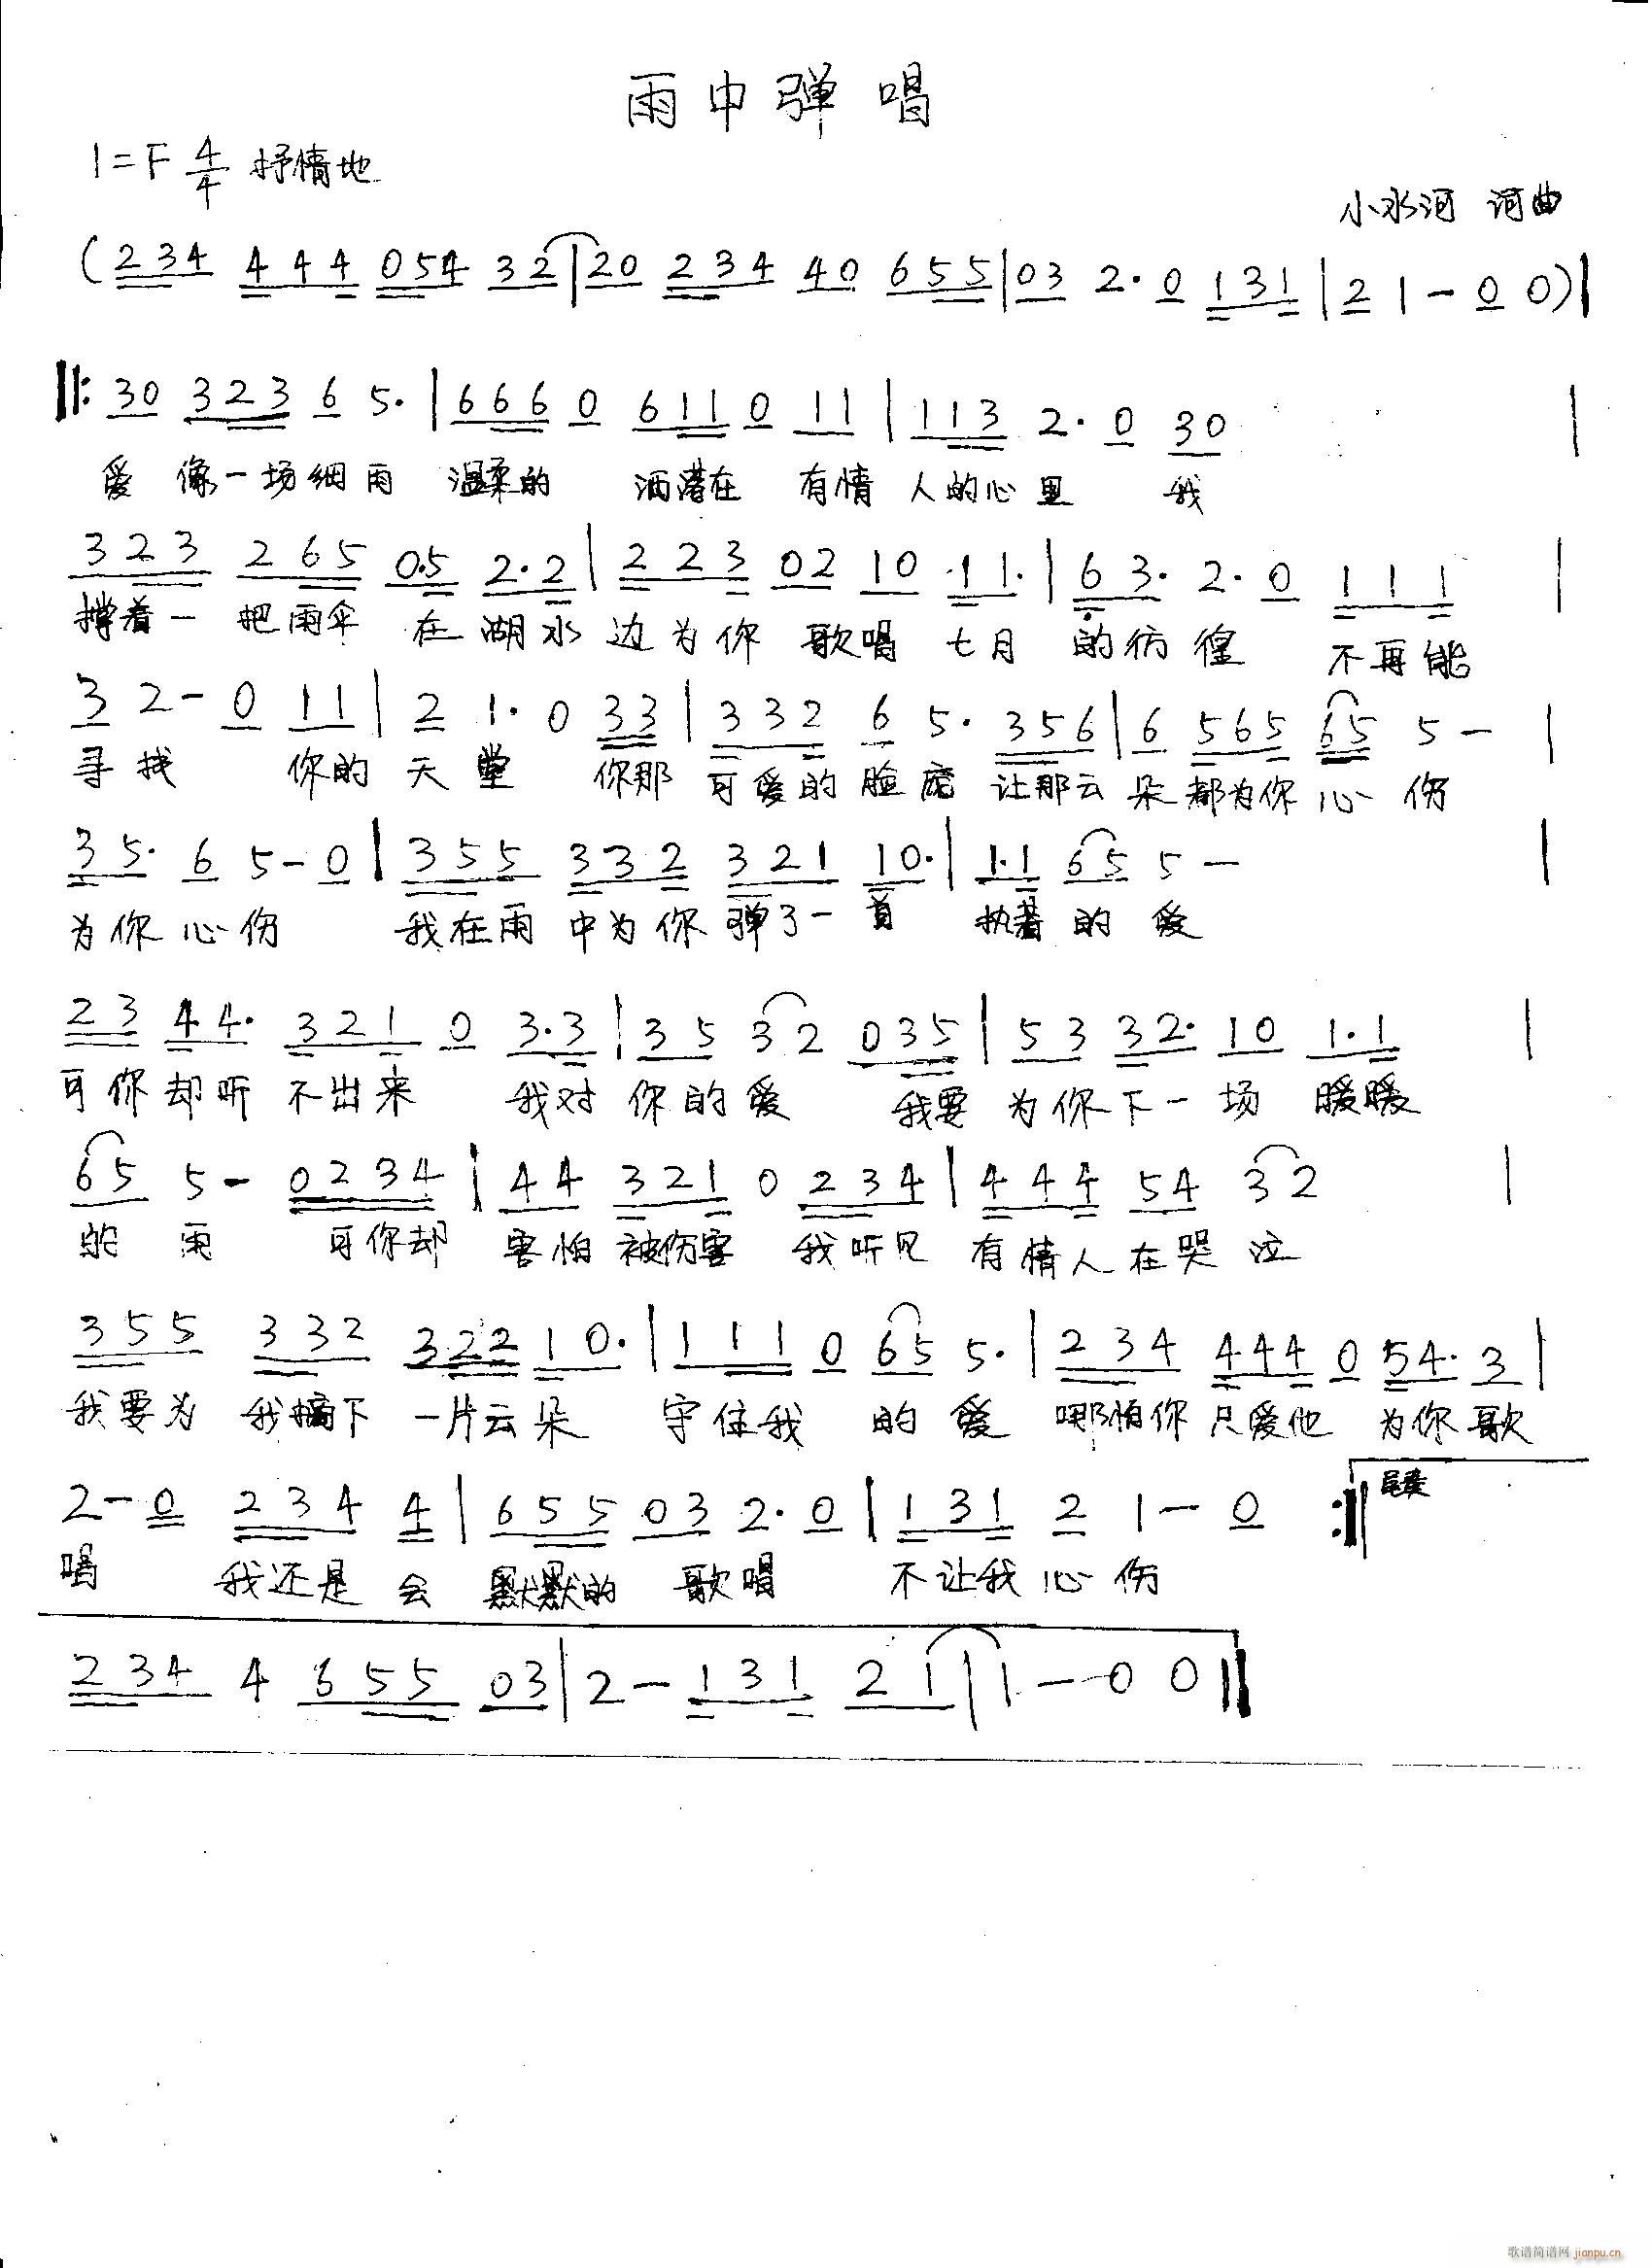 雨中弹唱
1=F 4/4 抒情地
小冰河 词曲
(234 444 054 32|20 234 40 655|03 2·0 131|2 1-0 0)|
‖: 30 323 6 5·|666 0 611 0 11|113 2·0 30|
爱 像一场细雨 温柔的 洒落在 有情人的心里 我
323 265 0·5 2·2|223 02 10 11·|63· 2·0 111|
撑着一把雨伞 在湖水边为你 歌唱 七月 的彷徨 不再能
3 2-0 11|2 1·0 33|332 6 5· 356|6 565 65 5-|
寻找 你的天堂 你那可爱的脸庞 让那云朵都为你心伤
35· 6 5-0|355 332 321 10·|1·1 65 5-|
为你心伤 我在雨中为你弹了一首 执着的爱
23 44· 321 0 3·3|35 32 035|53 32· 10 1·1|
可你却听不出来 我对你的爱 我要为你下一场 暖暖
65 5-0234|44 321 0 234|444 54 32|
的雨 可你却 害怕被伤害 我听见 有情人在哭泣
355 332 322 10·|111 0 65 5·|234 444 0 54· 3|
我要为 我摘下 一片云朵 守住我 的爱 哪怕你 只爱他 为你歌
2-0 234 4|655 03 2·0|131 2 1-0 :‖ 尾奏
唱 我还是会 默默的 歌唱 不让我心伤
234 4 655 03|2-131 21|1-0 0‖
歌谱简谱网 jianpu.cn